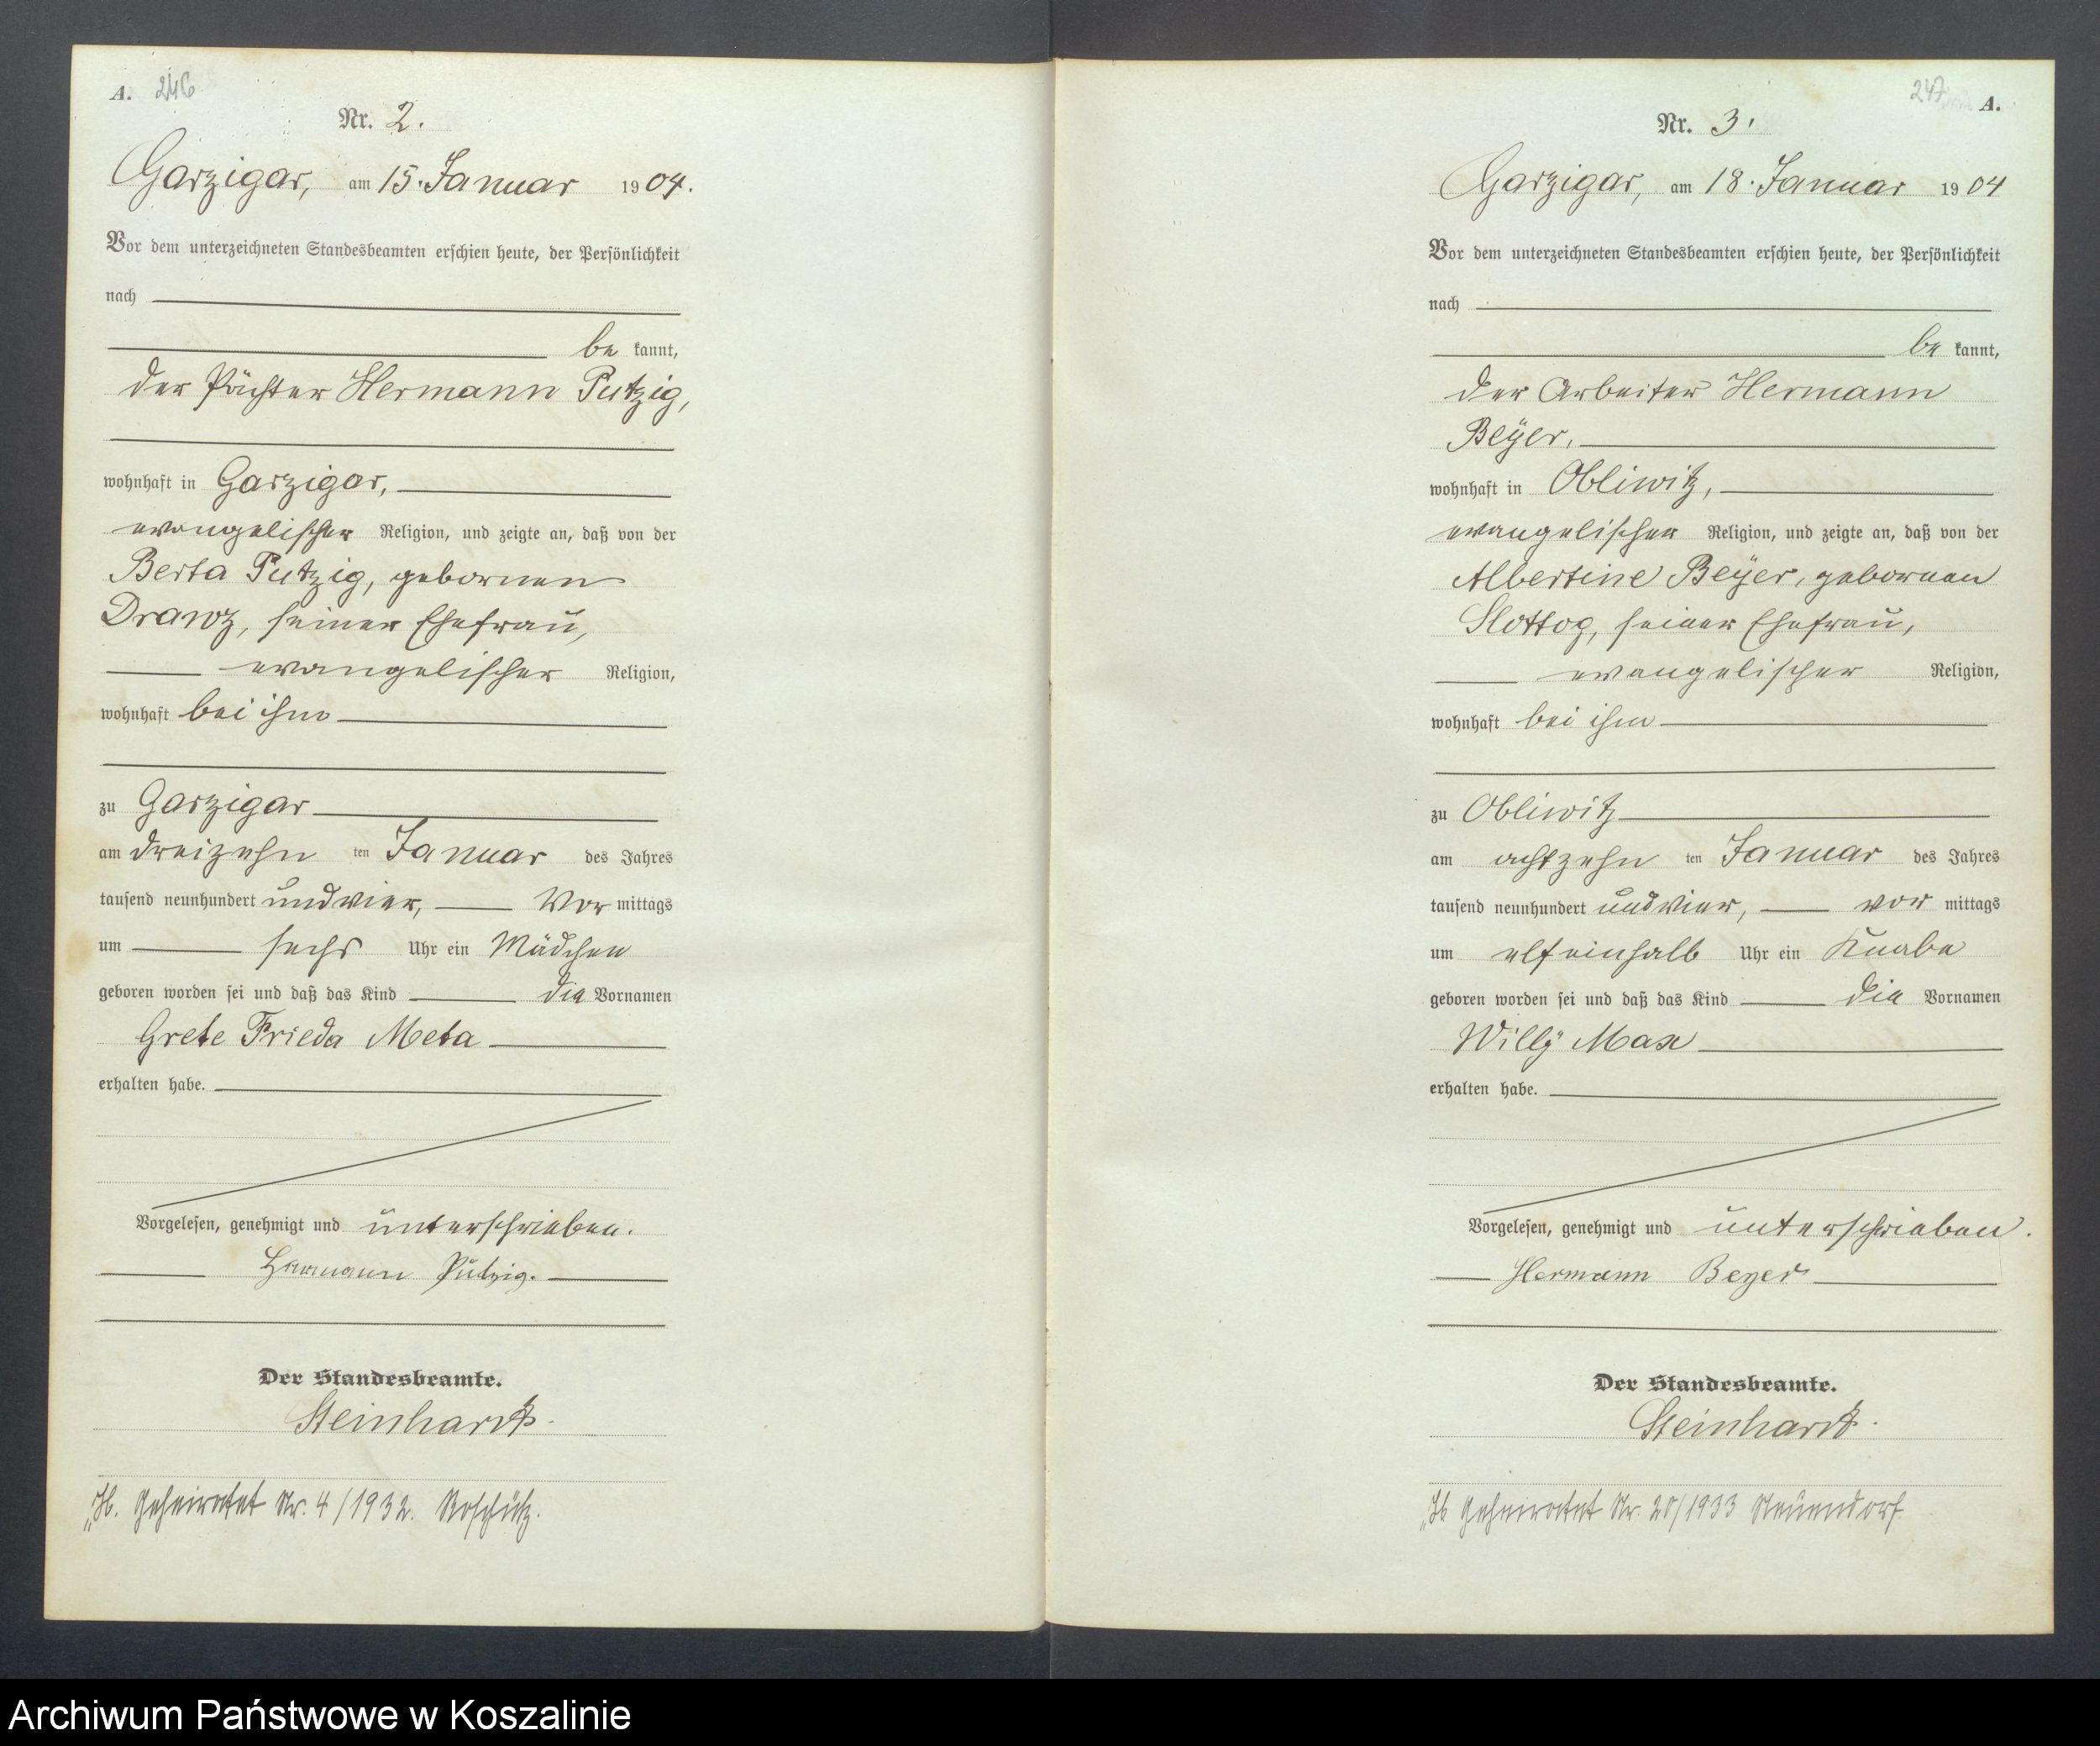 A. 246
Nr. 2.
Garzigar, am 15. Januar 1904.
Vor dem unterzeichneten Standesbeamten erschien heute, der Persönlichkeit
nach
be kannt,
der Pächter Hermann Putzig,
wohnhaft in Garzigar,
evangelischer Religion, und zeigte an, daß von der
Berta Putzig, geborenen
Drawz, seiner Ehefrau,
evangelischer Religion,
wohnhaft bei ihm
zu Garzigar
am dreizehn ten Januar des Jahres
tausend neunhundert und vier, Vor mittags
um sechs Uhr ein Mädchen
geboren worden sei und daß das Kind die Vornamen
Grete Frieda Meta
erhalten habe.
Vorgelesen, genehmigt und unterschrieben.
Hermann Putzig.
Der Standesbeamte.
Steinhardt.
„H. Geheiratet Nr. 4/1932. Roschütz.
247 A.
Nr. 3.
Garzigar, am 18. Januar 1904
Vor dem unterzeichneten Standesbeamten erschien heute, der Persönlichkeit
nach
be kannt,
der Arbeiter Hermann
Beyer,
wohnhaft in Obliwitz,
evangelischer Religion, und zeigte an, daß von der
Albertine Beyer, geborenen
Slottog, seiner Ehefrau,
evangelischer Religion,
wohnhaft bei ihm
zu Obliwitz
am achtzehn ten Januar des Jahres
tausend neunhundert und vier, vor mittags
um elf einhalb Uhr ein Knabe
geboren worden sei und daß das Kind die Vornamen
Willy Max
erhalten habe.
Vorgelesen, genehmigt und unterschrieben.
Hermann Beyer
Der Standesbeamte.
Steinhardt.
„H Geheiratet Nr. 20/1933 Neuendorf.
Archiwum Państwowe w Koszalinie